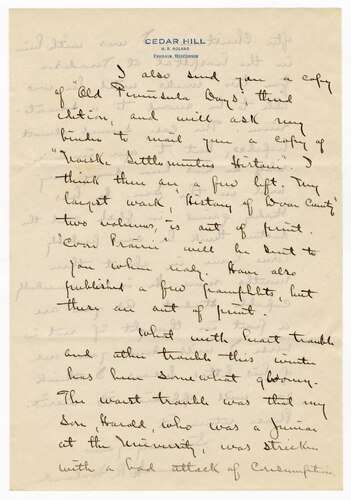 CEDAR HILL
H. R. HOLAND
EPHRAIM, WISCONSIN
I also send you a copy
of "Old Peninsula Days", third
edition, and will ask my
binder to mail you a copy of
"Norske Settlementers Historie". I
think there are a few left. My
largest work, "History of Door County"
two volumes, is out of print.
"Coon Prairie" will be sent to
you when ready. Have also
published a few pamphlets, but
these are out of print.
What with heart trouble
and other trouble this winter
has been somewhat gloomy.
The worst trouble was that my
son, Harold, who was a Junior
at the University, was stricken
with a bad attack of consumption